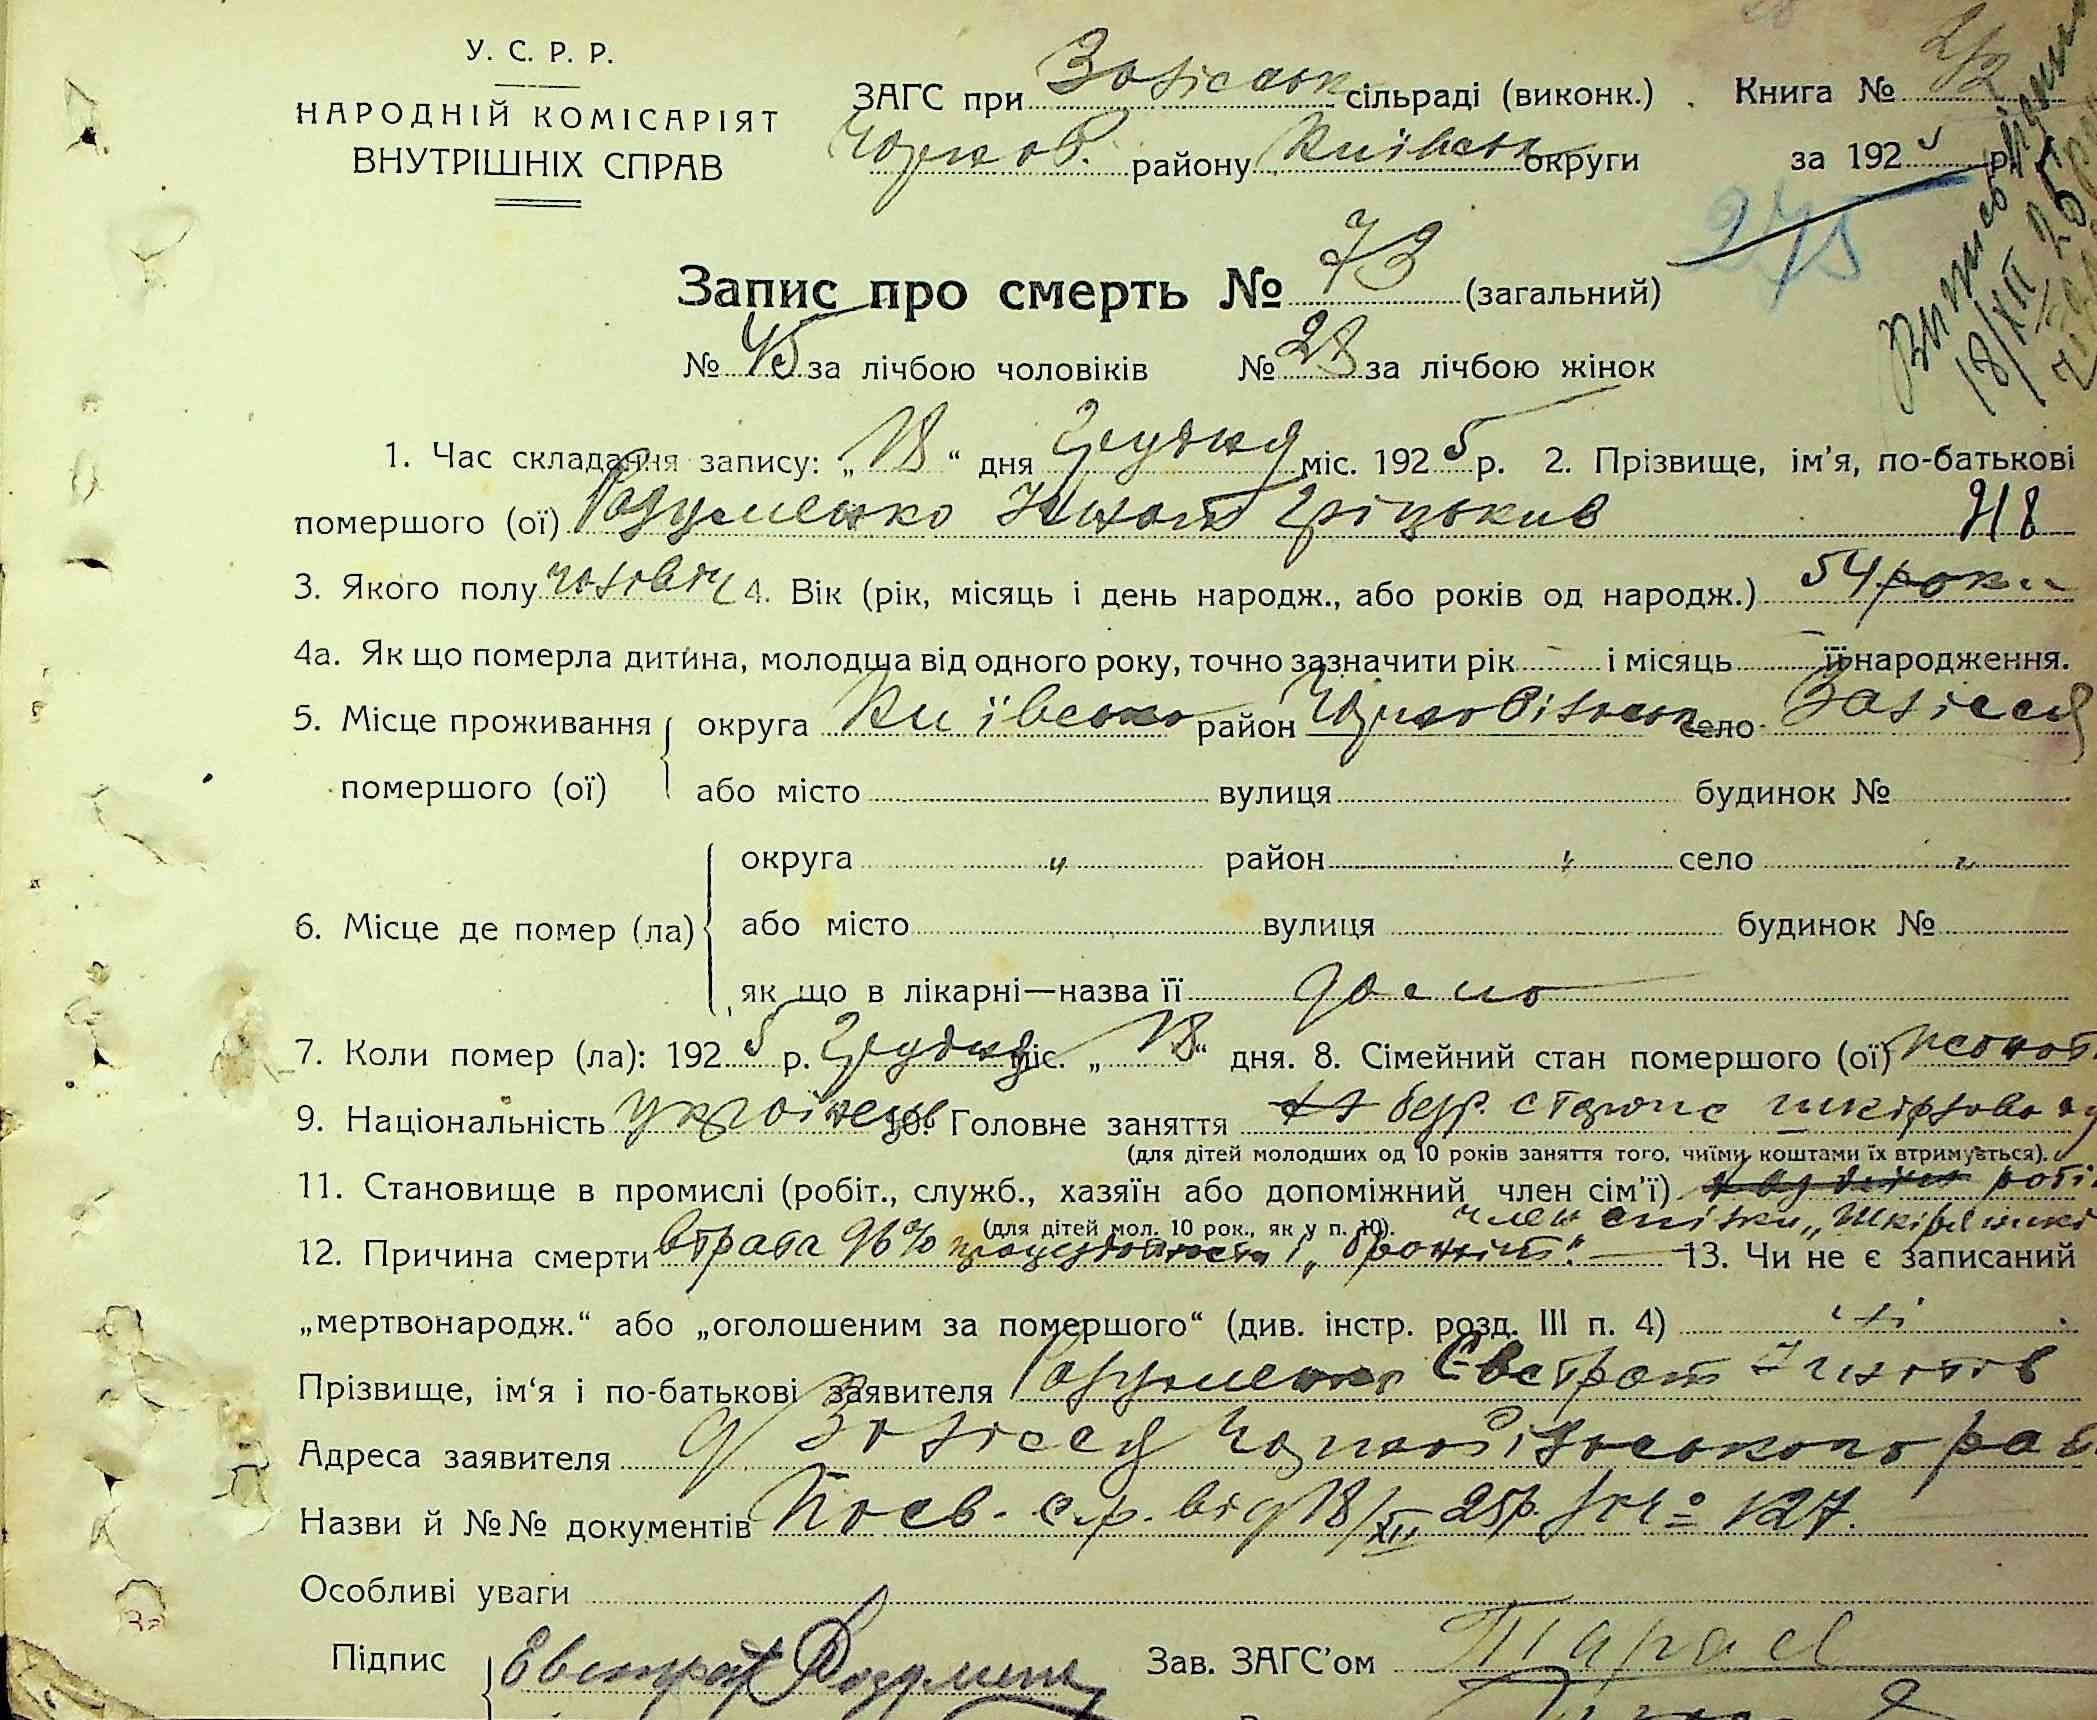 У. С. Р. Р.
НАРОДНІЙ КОМІСАРІЯТ
ВНУТРІШНІХ СПРАВ
ЗАГС при Заліськ сільраді (виконк.) Книга № 42
Чорноб. району Київськ округи за 1925 р.
275
18/XII 25
Запис про смерть № 73 (загальний)
№ 45 за лічбою чоловіків № 28 за лічбою жінок
1. Час складання запису: „18“ дня Грудня міс. 1925 р. 2. Прізвище, ім'я, по-батькові
помершого (ої) Розуменко Ігнат Гріцьків
3. Якого полу чоловіч 4. Вік (рік, місяць і день народж., або років од народж.) 54 роки
4а. Як що померла дитина, молодша від одного року, точно зазначити рік і місяць її народження.
5. Місце проживання округа Київська район Чорнобільськ село Залісся
помершого (ої) або місто вулиця будинок №
округа " район " село "
6. Місце де помер (ла) або місто вулиця будинок №
як що в лікарні—назва її дома
7. Коли помер (ла): 1925 р. Грудня міс. „18“ дня. 8. Сімейний стан помершого (ої) жонат
9. Національність українець 10. Головне заняття
(для дітей молодших од 10 років заняття того, чиїми коштами їх втримується).
11. Становище в промислі (робіт., служб., хазяїн або допоміжний член сім'ї) робі
(для дітей мол. 10 рок., як у п. 10). член спілки „Шкіряників
12. Причина смерти втрата 96% працездатности і „бронхіт“. 13. Чи не є записаний
„мертвонародж.“ або „оголошеним за помершого“ (див. інстр. розд. III п. 4) ні
Прізвище, ім'я і по-батькові заявителя Розуменко Євстрат Ігнатів
Адреса заявителя с/ Залісся Чорнобільського рай
Назви й №№ документів Посв. с.р. від 18/XII 25р. за № 127.
Особливі уваги
Підпис Евстрат Розумен Зав. ЗАГС'ом